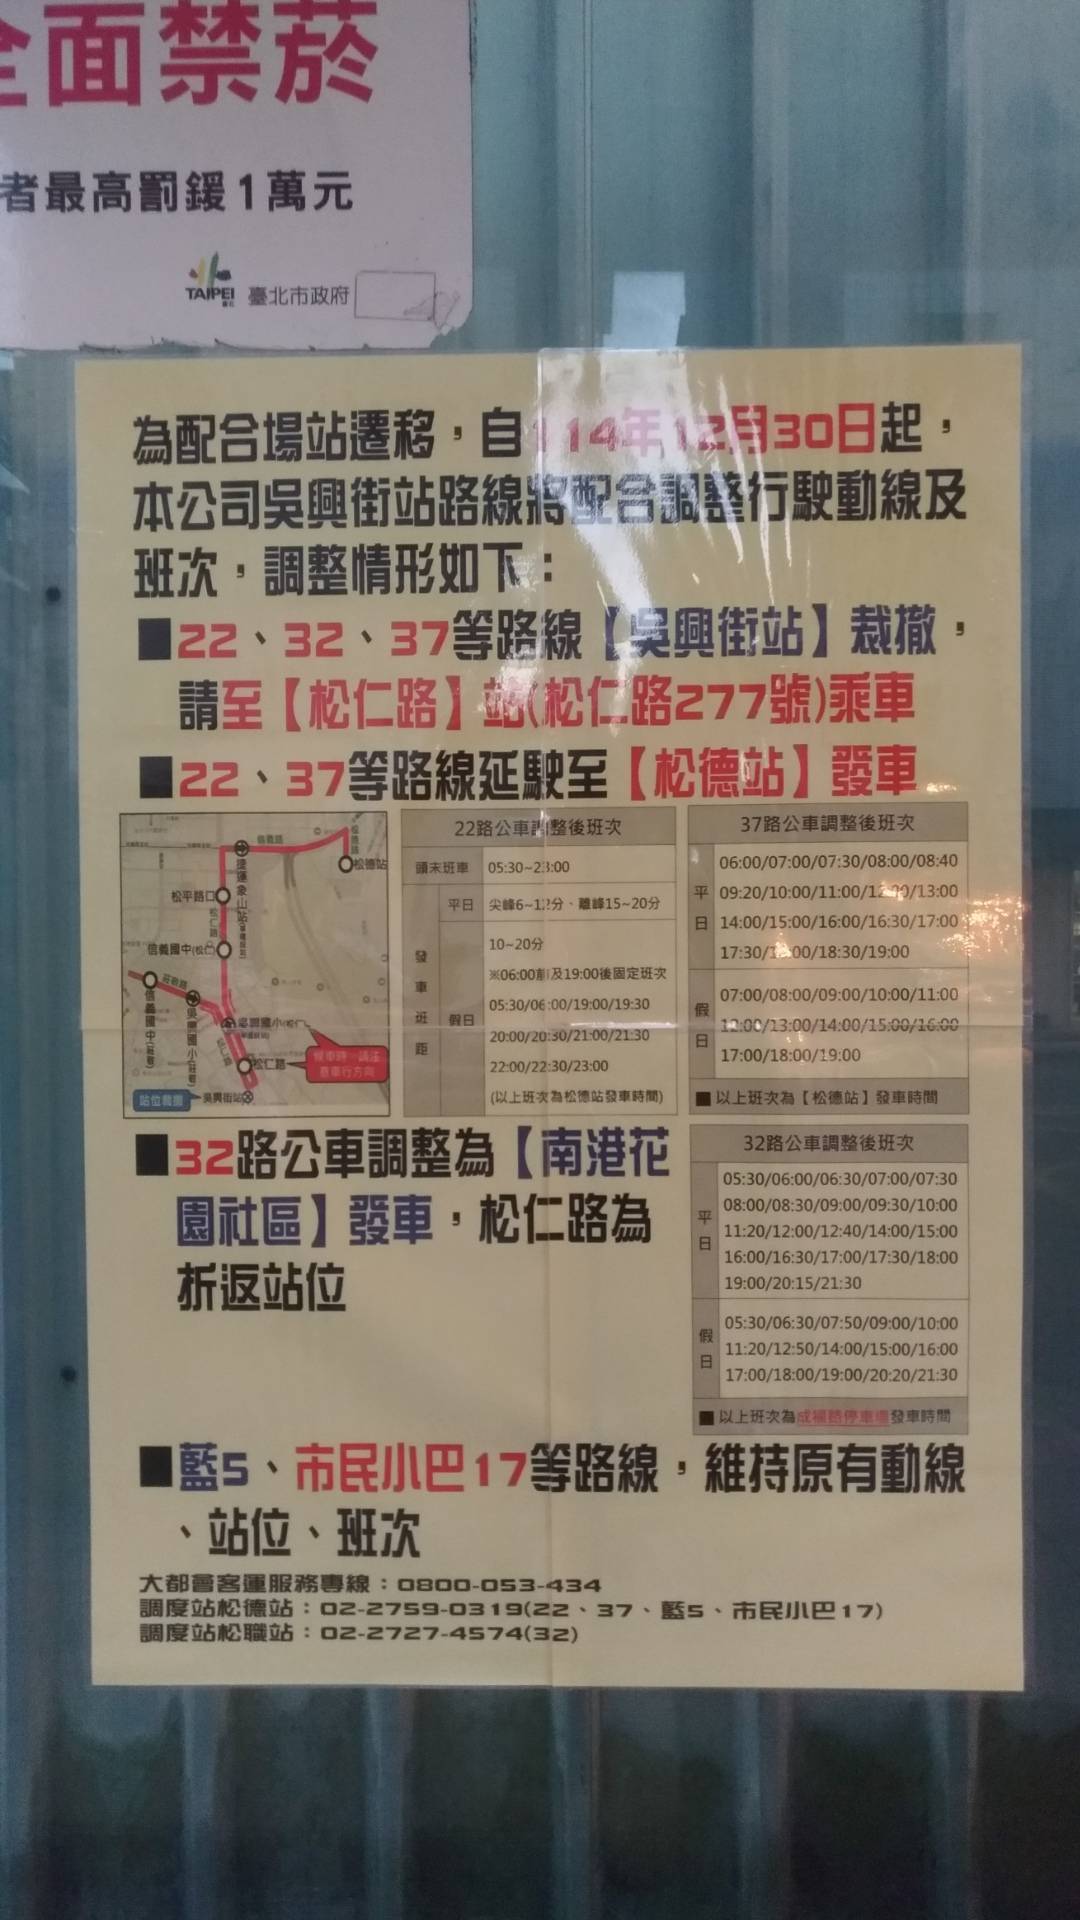 全面禁菸
者最高罰鍰1萬元
TAIPEI 臺北市政府
為配合場站遷移，自114年12月30日起，
本公司吳興街站路線將配合調整行駛動線及
班次，調整情形如下：
■22、32、37等路線【吳興街站】裁撤，
請至【松仁路】站(松仁路277號)乘車
■22、37等路線延駛至【松德站】發車
信義路
松德路
松德站
捷運象山站
松平路口
松仁路
信義國中(松仁)
莊敬路
信義國中(莊敬)
吳興國小(莊敬)
吳興國小(松仁)
松仁路
候車時，請注
意車行方向
站位裁撤
吳興街站
22路公車調整後班次
頭末班車 05:30~23:00
發車班距
平日 尖峰6~12分、離峰15~20分
假日
10~20分
※06:00前及19:00後固定班次
05:30/06:00/19:00/19:30
20:00/20:30/21:00/21:30
22:00/22:30/23:00
(以上班次為松德站發車時間)
37路公車調整後班次
平日
06:00/07:00/07:30/08:00/08:40
09:20/10:00/11:00/12:00/13:00
14:00/15:00/16:00/16:30/17:00
17:30/18:00/18:30/19:00
假日
07:00/08:00/09:00/10:00/11:00
12:00/13:00/14:00/15:00/16:00
17:00/18:00/19:00
■以上班次為【松德站】發車時間
■32路公車調整為【南港花
園社區】發車，松仁路為
折返站位
32路公車調整後班次
平日
05:30/06:00/06:30/07:00/07:30
08:00/08:30/09:00/09:30/10:00
11:20/12:00/12:40/14:00/15:00
16:00/16:30/17:00/17:30/18:00
19:00/20:15/21:30
假日
05:30/06:30/07:50/09:00/10:00
11:20/12:50/14:00/15:00/16:00
17:00/18:00/19:00/20:20/21:30
■以上班次為成福路停車場發車時間
■藍5、市民小巴17等路線，維持原有動線
、站位、班次
大都會客運服務專線：0800-053-434
調度站松德站：02-2759-0319(22、37、藍5、市民小巴17)
調度站松職站：02-2727-4574(32)